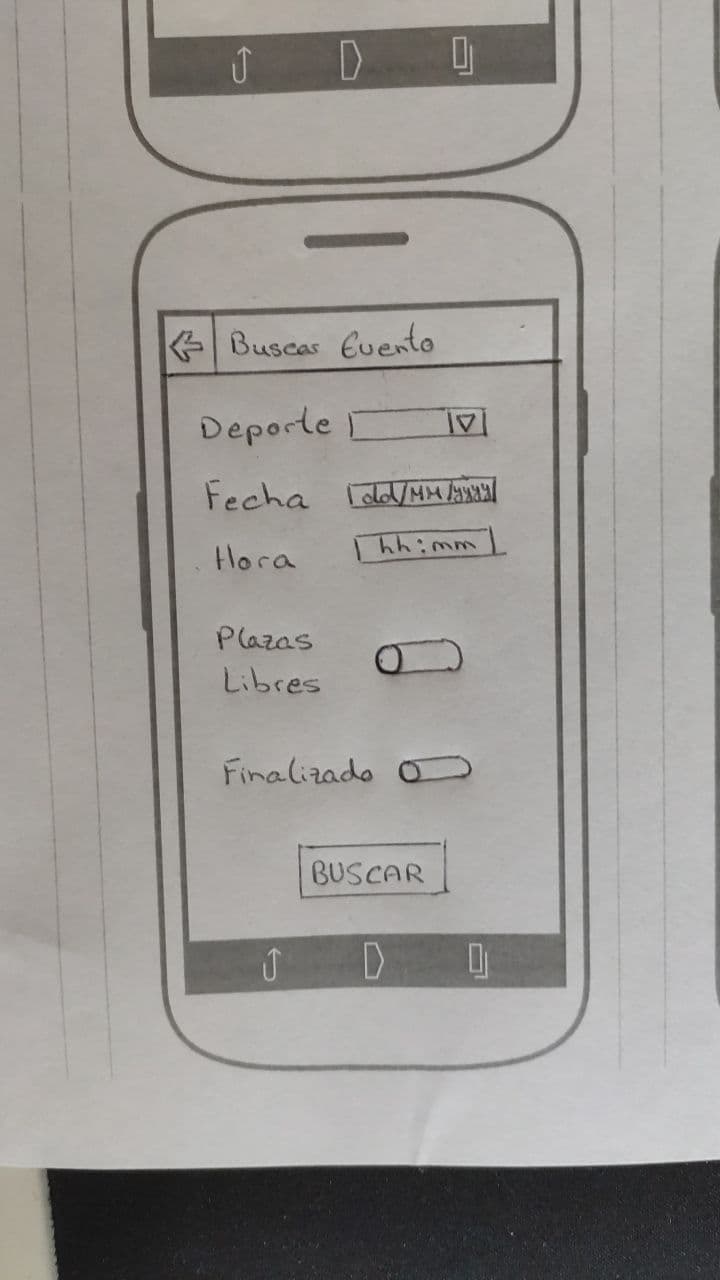 Buscar Evento
Deporte
Fecha dd/MM/yyyy
Hora hh:mm
Plazas
Libres
Finalizado
BUSCAR